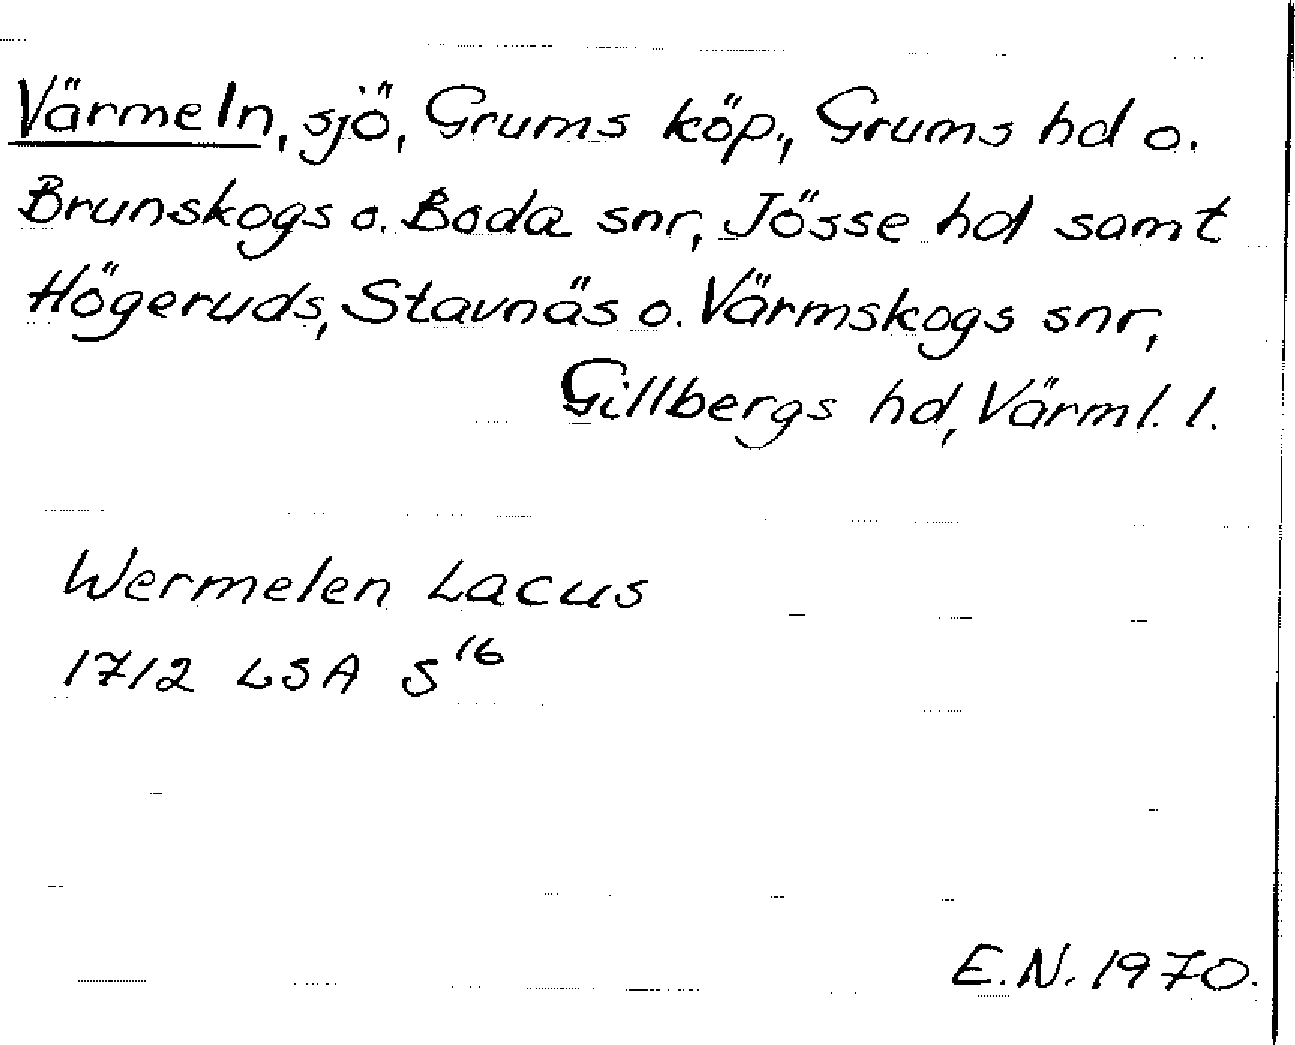 Värmeln, sjö, Grums köp., Grums hd o.
Brunskogs o. Boda snr, Jösse hd samt
Högeruds, Stavnäs o. Värmskogs snr,
Gillbergs hd, Värml. l.
Wermelen Lacus
1712 LSA S16
E.N. 1970.